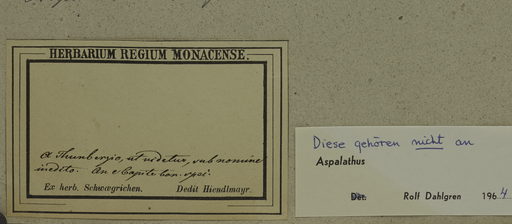 HERBARIUM REGIUM MONACENSE.
a Thunbergio, ut videtur, sub nomine
inedito. An e Capite bon. spei.
Ex herb. Schwægrichen. Dedit Hiendlmayr.
Diese gehören nicht an
Aspalathus
Det. Rolf Dahlgren 1964